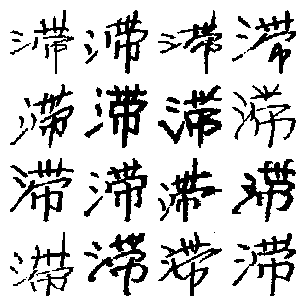 滞滞滞滞
滞滞滞滞
滞滞滞滞
滞滞滞滞